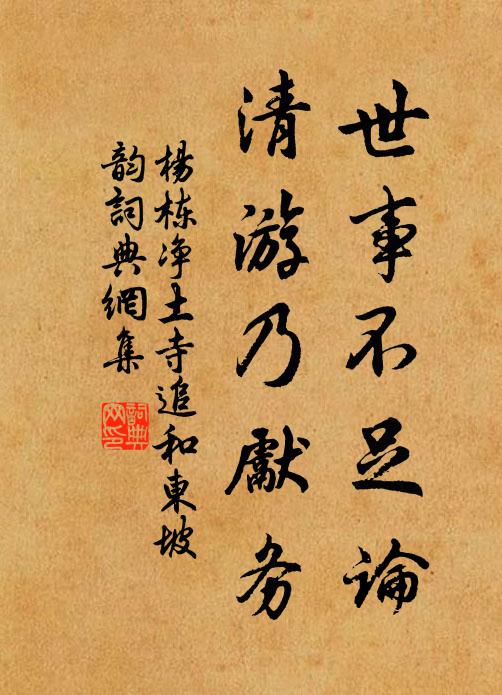 世事不足論
清游乃獻务
楊栋净土寺追和東坡
韵詞典網集
詞典
网印